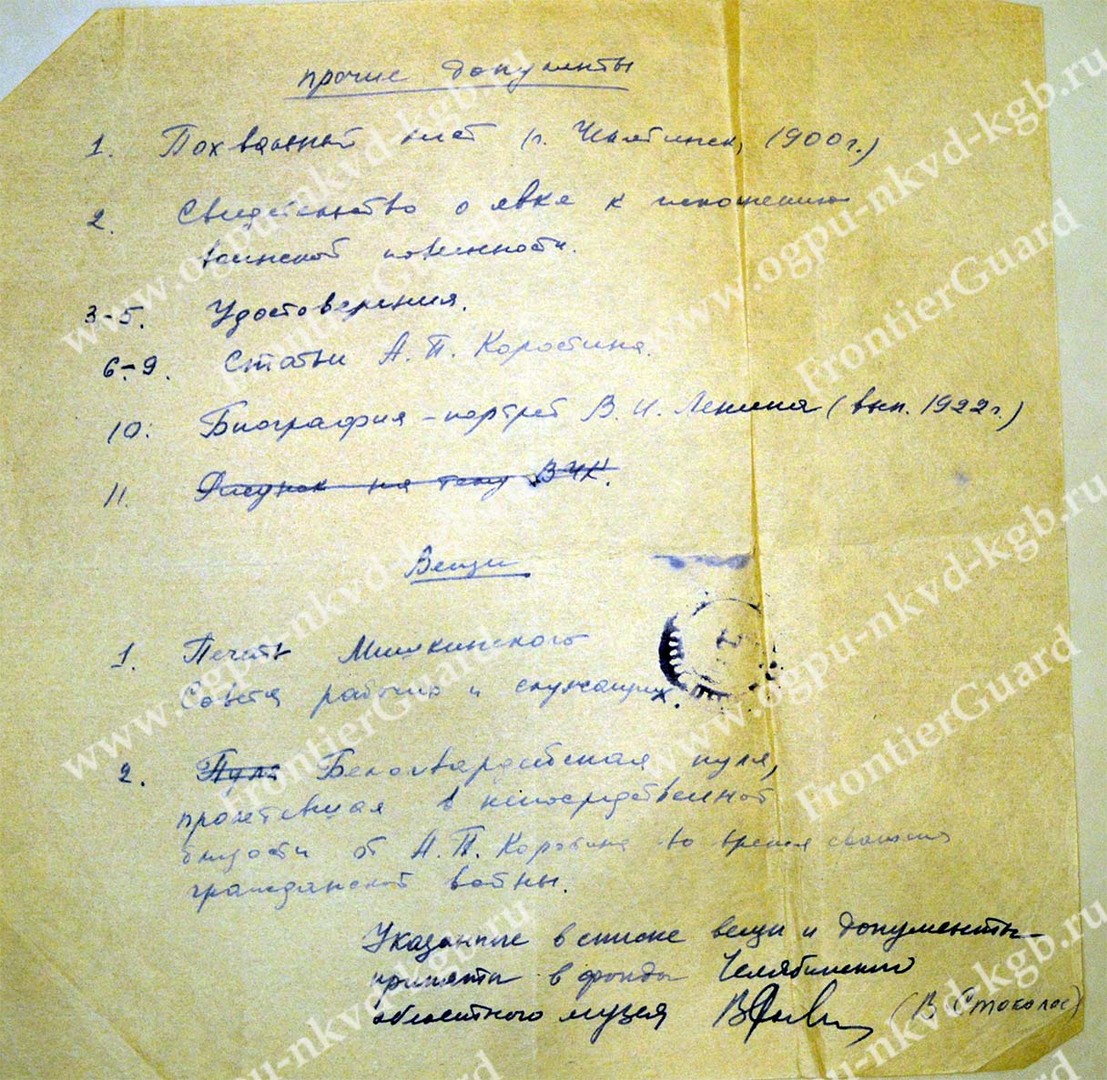 прочие документы
1. Похвальный лист (г. Челябинск, 1900г.)
2. Свидетельство о явке к исполнению
воинской повинности.
3-5. Удостоверения.
6-9. Статьи А. П. Коростина.
10. Биография-портрет В. И. Ленина (вып. 1922г.)
11. Рисунок на тему ВЧК.
Вещи
1. Печать Мишкинского
Совета рабочих и служащих.
2. Пуля Белогвардейская пуля,
пролетевшая в непосредственной
близости от А. П. Коростина во время
гражданской войны.
Указанные в списке вещи и документы
приняты в фонды Челябинского
областного музея (В Стоколос)
www.ogpu-nkvd-kgb.ru
FrontierGuard
www.ogpu-nkvd-kgb.ru
FrontierGuard
www.ogpu-nkvd-kgb.ru
FrontierGuard
www.ogpu-nkvd-kgb.ru
FrontierGuard